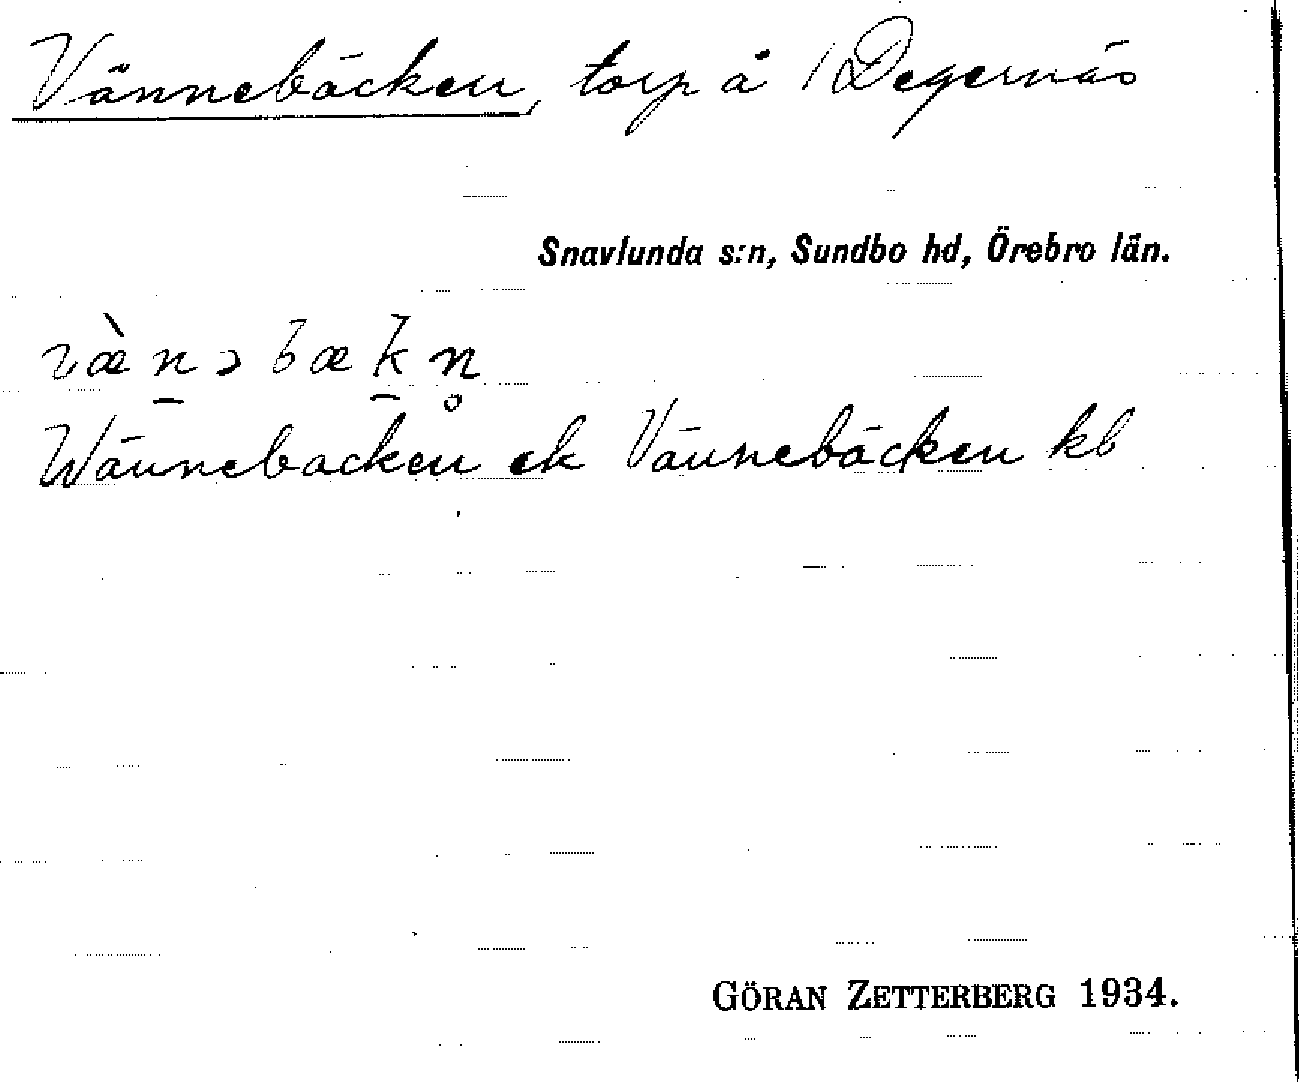 Vännebäcken, torp å 1 Degernäs
Snavlunda s:n, Sundbo hd, Örebro län.
væ̀n̠əbæk̠n̥
Wännebacken ek Vännebäcken kb
GÖRAN ZETTERBERG 1934.